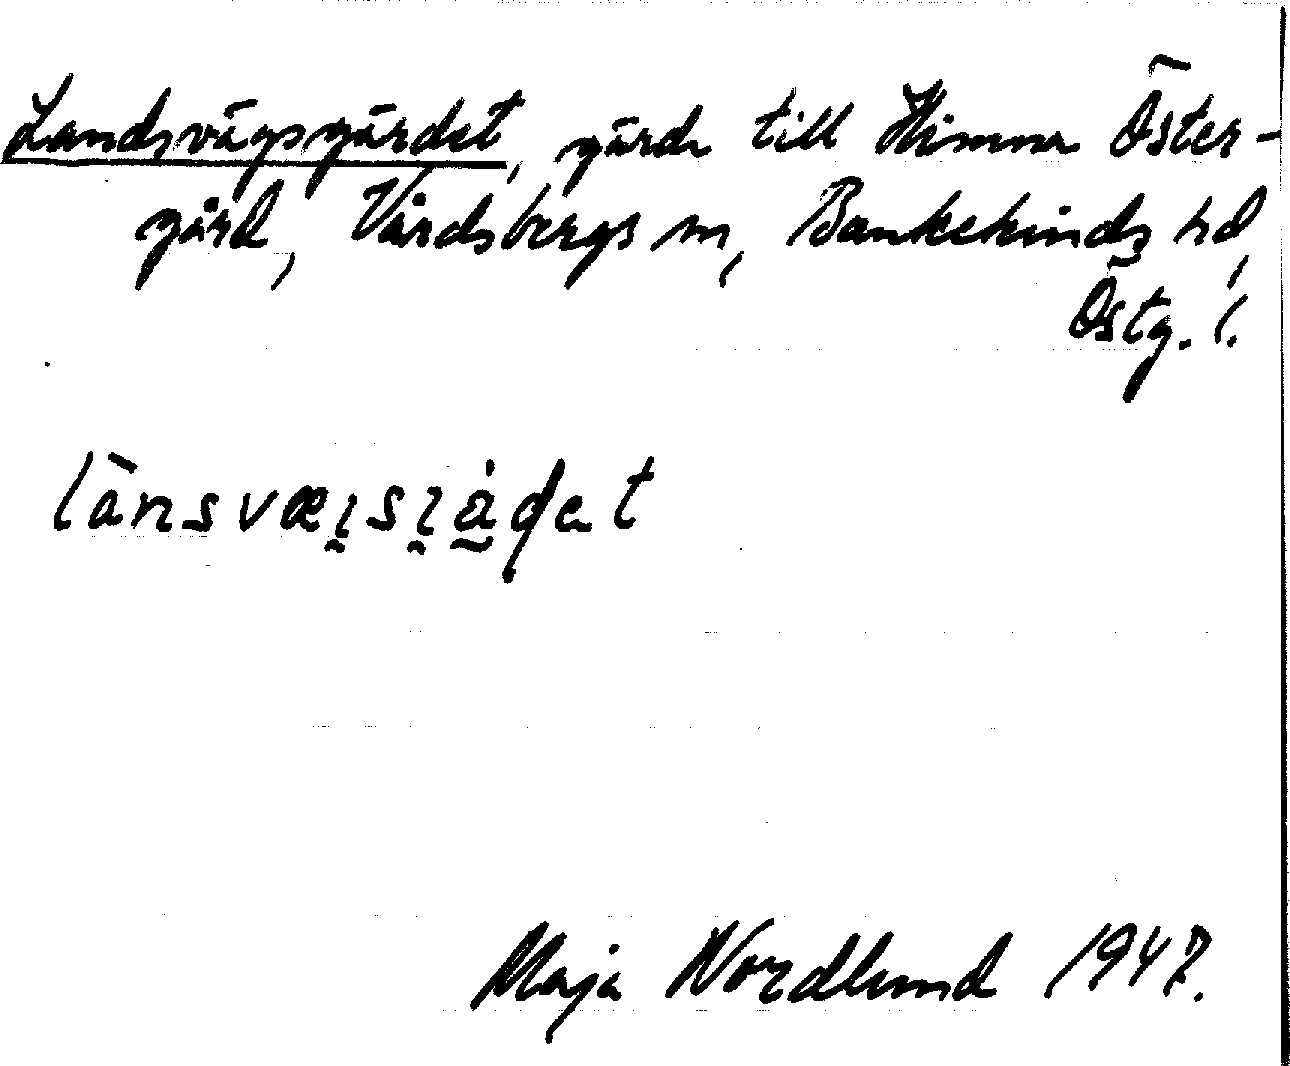 Landsvägsgärdet, gärde till Himna Öster-
gård, Vårdsbergs sn, Bankekinds hd,
Östg. l.
länsvæı̯sı̯ȧ̰ɖet
Maja Nordlund 1947.